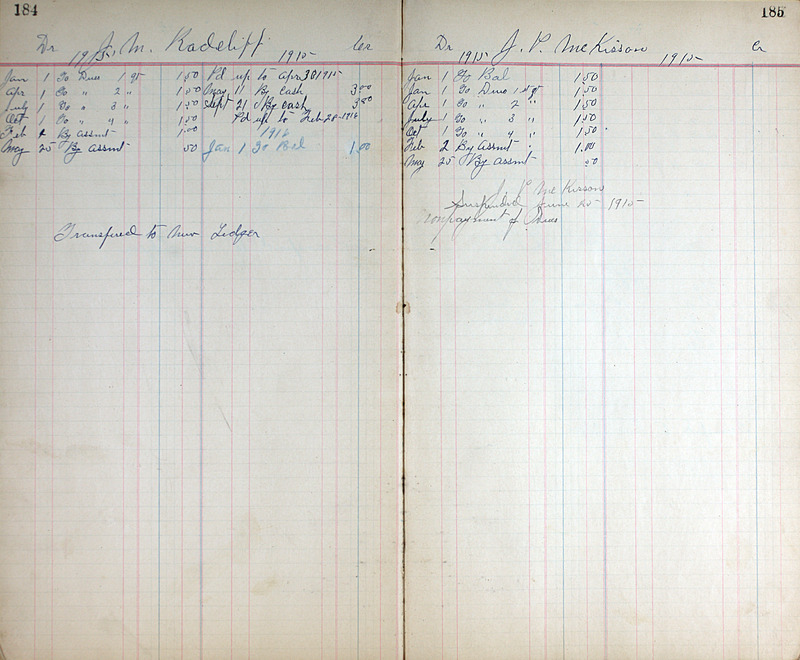 184
Dr J. M. Radcliff Cr
1915 1915
Jan 1 To Dues 1 qr 1.50 Pd up to Apr 30 1915
Apr 1 To " 2 " 1.50 May 11 By cash 3.00
July 1 To " 3 " 1.50 Sept 21 By cash 3.80
Oct 1 To " 4 " 1.50 Pd up to Feb 28-1916
Feb 2 By assmt 1.00 1916
May 25 By assmt 50 Jan 1 To Bal 1.00
Transfered to New Ledger
185
Dr J. P. McKisson Cr
1915 1915
Jan 1 To Bal 1.50
Jan 1 To Dues 1 qr 1.50
Apr 1 To " 2 " 1.50
July 1 To " 3 " 1.50
Oct 1 To " 4 " 1.50
Feb 2 By Assmt 1.00
May 25 By assmt 50
J. P. McKisson
Suspended June 25 1915
nonpayment of Dues